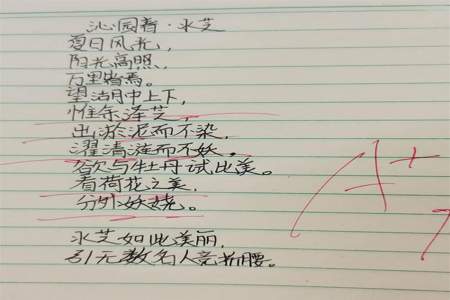 沁园春·水芝
夏日风光，
阳光高照，
万里皆焉。
望湖中上下，
惟余泽芝，
出淤泥而不染，
濯清涟而不妖。
欲与牡丹试比美。
看荷花之美，
分外妖娆。
水芝如此美丽，
引无数名人竞折腰。